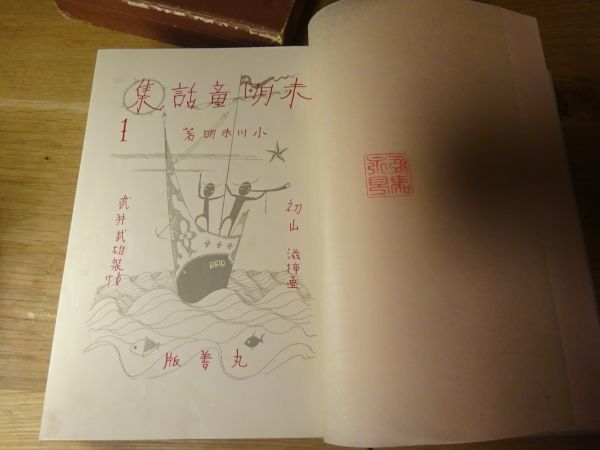 未明童話集
1
小川未明著
初山滋挿画
武井武雄装幀
丸善版